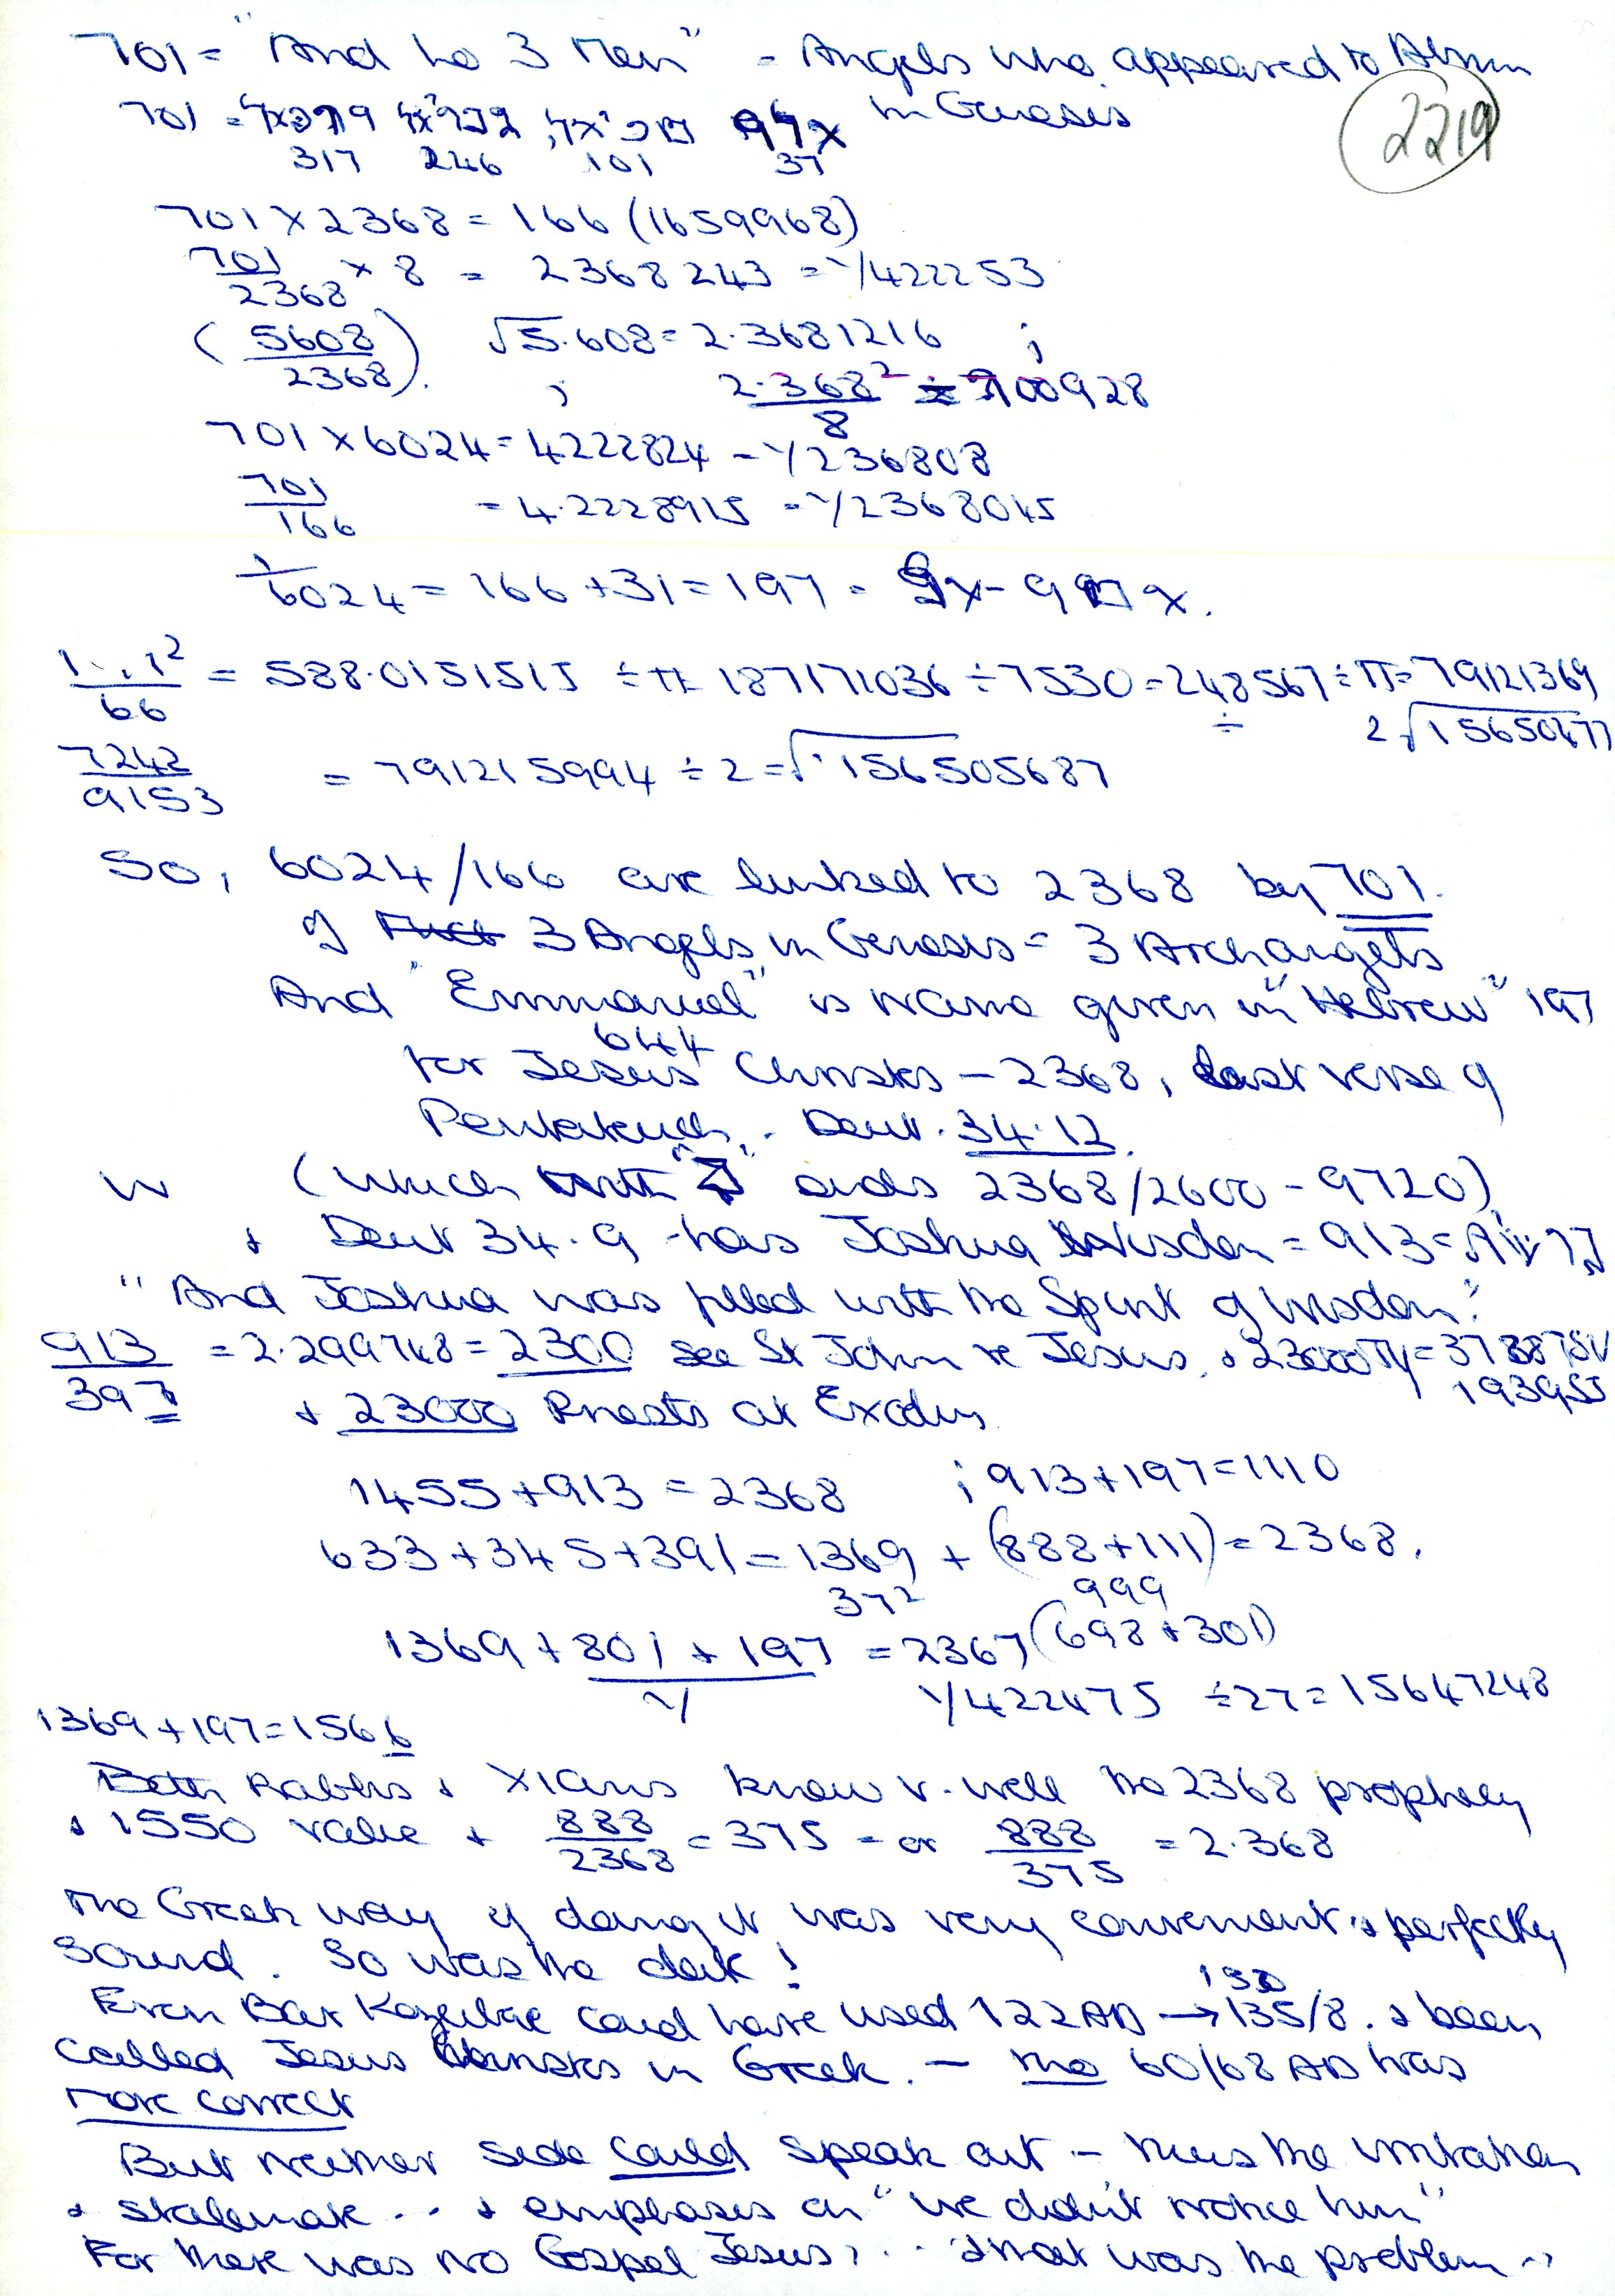 701 = "And lo 3 Men" - Angels who appeared to Abram
in Genesis
2219
701 =
317 246 101 37
701 x 2368 = 166 (1659968)
701/2368 x 8 = 2368243 = Y422253
(5608/2368). √5.608 = 2.3681216 ;
; 2.368²/8 = 700928
701 x 6024 = 4222824 = Y236808
701/166 = 4.2228915 = Y2368045
1/6024 = 166 + 31 = 197 =
/66 = 588.0151515 ÷ π = 187171036 ÷ 7530 = 248567 ÷ π = 79121369
÷ 2 √15650477
7242/9153 = 791215994 ÷ 2 = √156505687
So, 6024/166 are linked to 2368 by 701.
of 3 Angels in Genesis = 3 Archangels
And "Emmanuel" is name given in "Hebrew" 197
644
for Jesus Christos - 2368, last verse of
Pentateuch. Deut. 34.12.
(which with adds 2368/2600 - 9720)
+ Deut 34.9 has Joshua Wisdom = 913 =
"And Joshua was filled with the Spirit of Wisdom."
913/397 = 2.299748 = 2300 see St John re Jesus, + 23000
193955
+ 23000 Priests at Exodus
1455 + 913 = 2368 ; 913 + 197 = 1110
633 + 345 + 391 = 1369 + (888 + 111) = 2368.
37² 999
1369 + 801 + 197 = 2367 (698 + 301)
Y Y422475 ÷ 27 = 15647248
1369 + 197 = 1566
Both Rabbis + Xians know v. well the 2368 prophecy
+ 1550 value + 888/2368 = 375 - or 888/375 = 2.368
The Greek way of doing it was very convenient + perfectly
sound. So was the date!
130
Even Bar Kozebae could have used 122 AD → 135/8. + been
called Jesus Christos in Greek. - the 60/68 AD was
more correct
But neither side could speak out - thus the imitation
+ stalemate .. + emphases on "we didn't notice him"
For there was no Gospel Jesus, .. + that was the problem ..